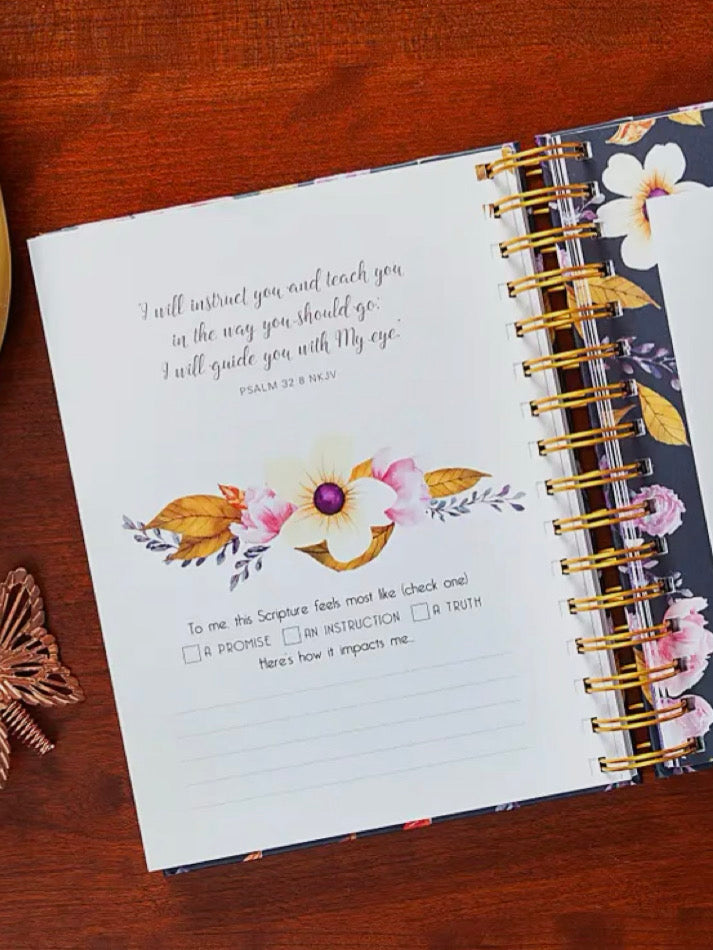 "I will instruct you and teach you
in the way you should go;
I will guide you with My eye."
PSALM 32:8 NKJV
To me, this Scripture feels most like (check one)
A PROMISE AN INSTRUCTION A TRUTH
Here's how it impacts me...